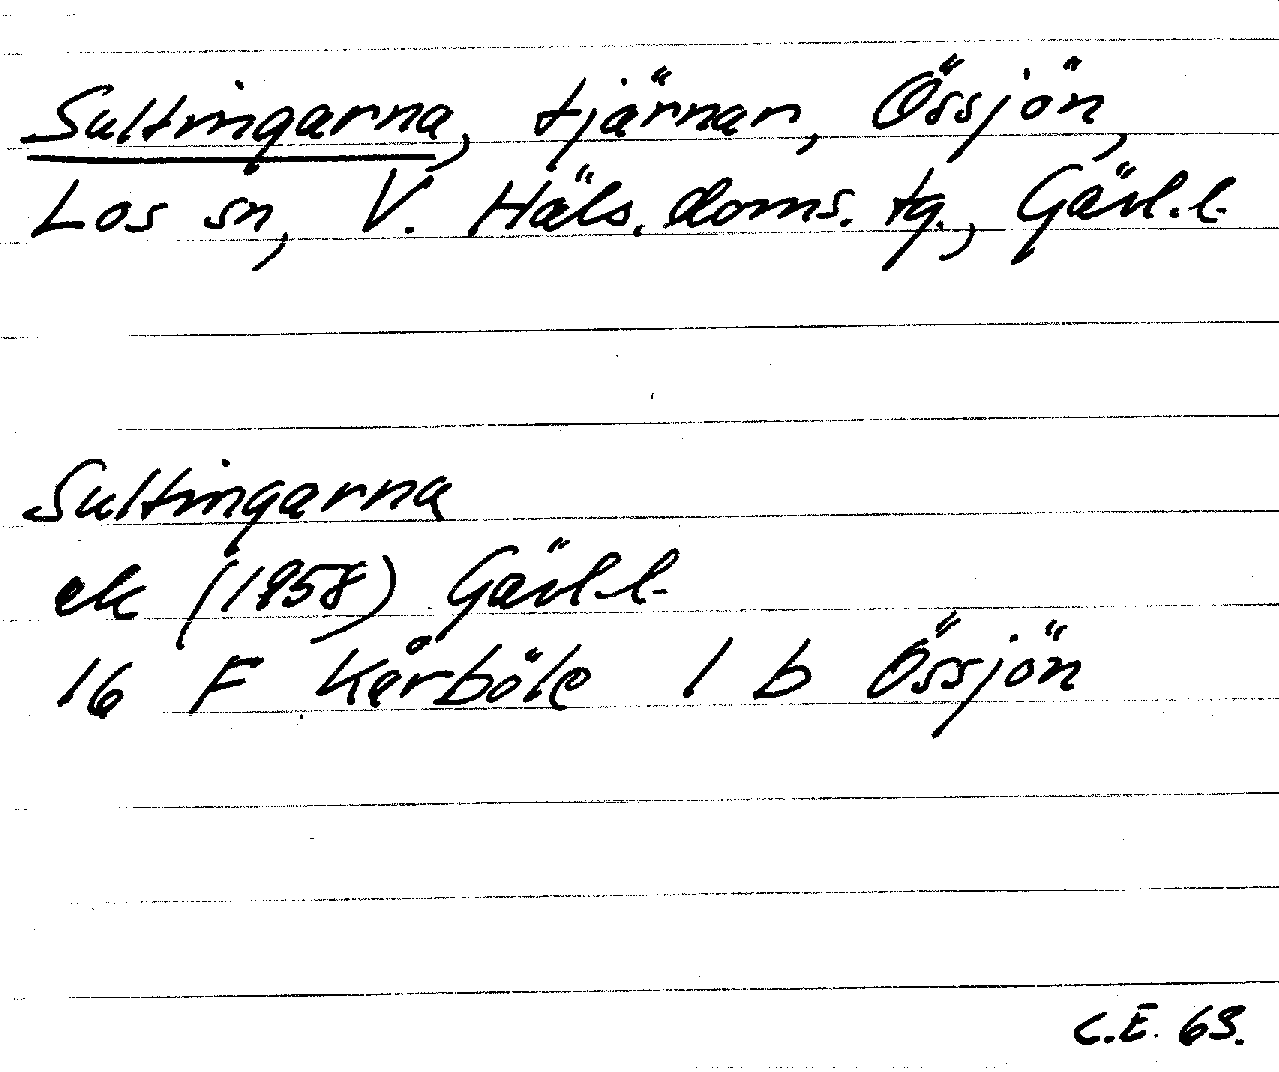 Sultingarna, tjärnar, Össjön,
Los sn, V. Häls. doms. tg., Gävl.l.
Sultingarna
ek (1958) Gävl.l.
16 F Kårböle 1 b Össjön
C.E. 63.